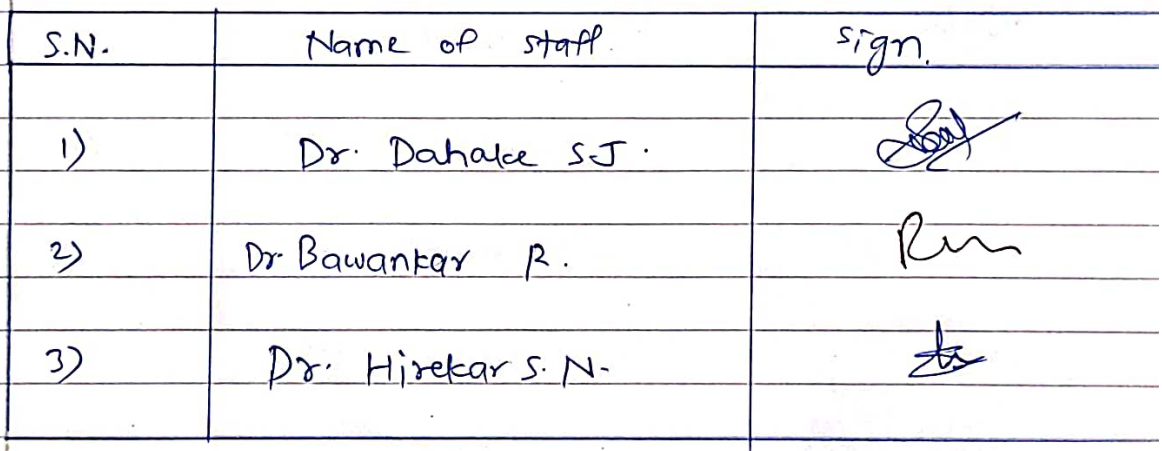 S.N. Name of staff. Sign.
1) Dr. Dahake SJ.
2) Dr. Bawankar R.
3) Dr. Hirekar S. N.